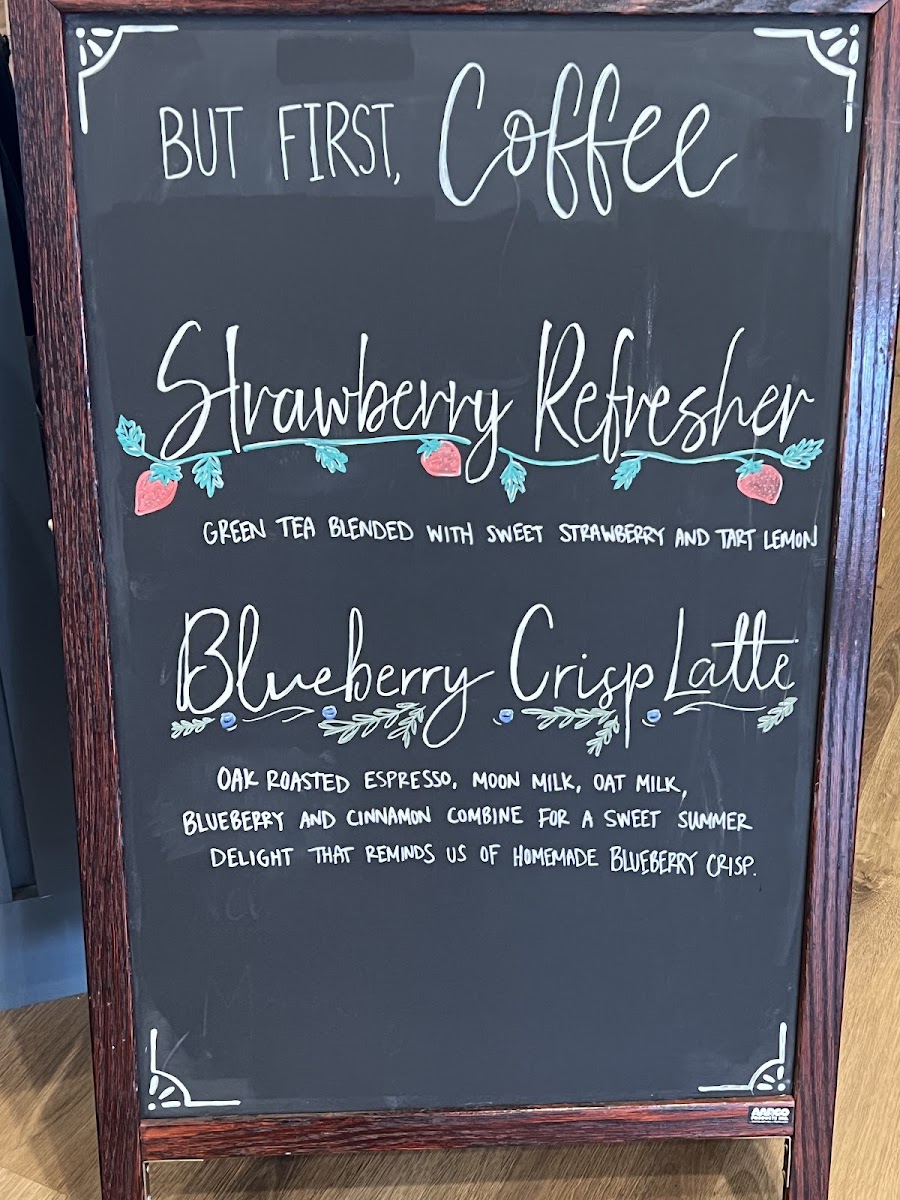 BUT FIRST, Coffee
Strawberry Refresher
GREEN TEA BLENDED WITH SWEET STRAWBERRY AND TART LEMON
Blueberry Crisp Latte
OAK ROASTED ESPRESSO, MOON MILK, OAT MILK,
BLUEBERRY AND CINNAMON COMBINE FOR A SWEET SUMMER
DELIGHT THAT REMINDS US OF HOMEMADE BLUEBERRY CRISP.
AARCO
PRODUCTS INC.